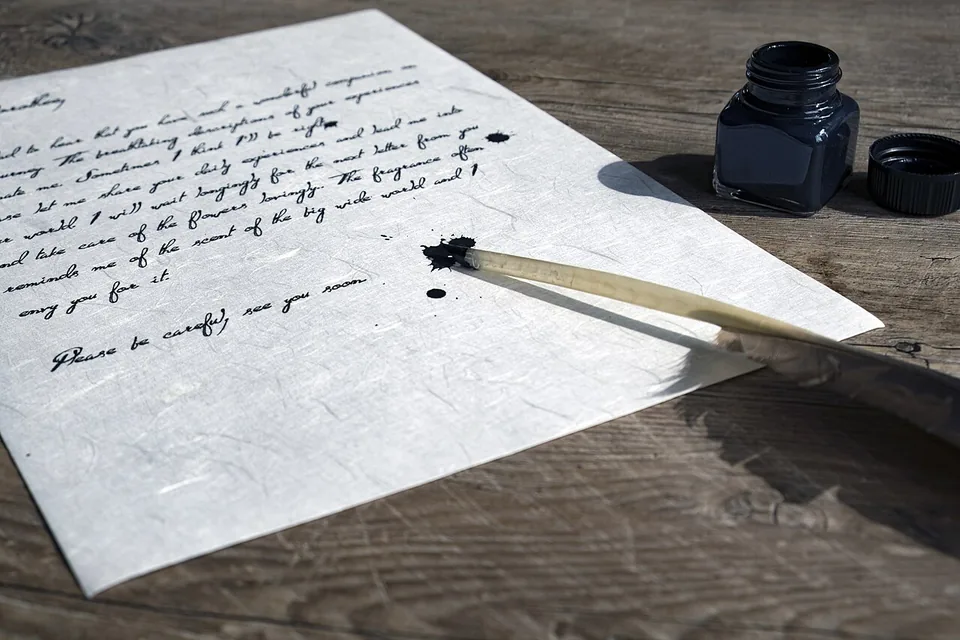 to hear that you have a wonderful companion on
urney. The breathtaking descriptions of your experiences
ate me. Sometimes I think I'll be right
se let me share your daily experiences and lead me into
r world I will wait longingly for the next letter from you
nd take care of the flowers lovingly. The fragrance often
reminds me of the scent of the big wide world and I
envy you for it.
Please be careful, see you soon